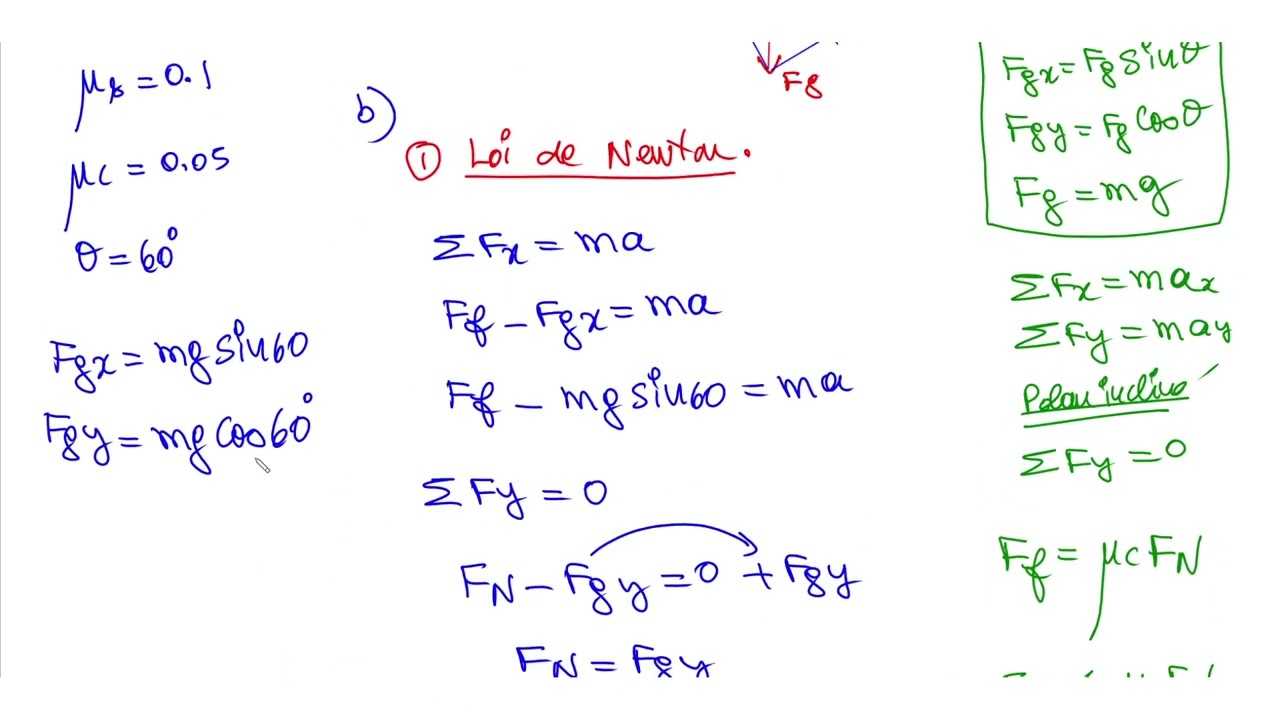 μs = 0.1
μc = 0.05
θ = 60°
Fgx = mg sin60
Fgy = mg cos60°
b)
① Loi de Newton.
ΣFx = ma
Ff - Fgx = ma
Ff - mg sin60 = ma
ΣFy = 0
FN - Fgy = 0 + Fgy
FN = Fgy
Fg
Fgx = Fg sinθ
Fgy = Fg cosθ
Fg = mg
ΣFx = max
ΣFy = may
incliné
ΣFy = 0
Ff = μc FN